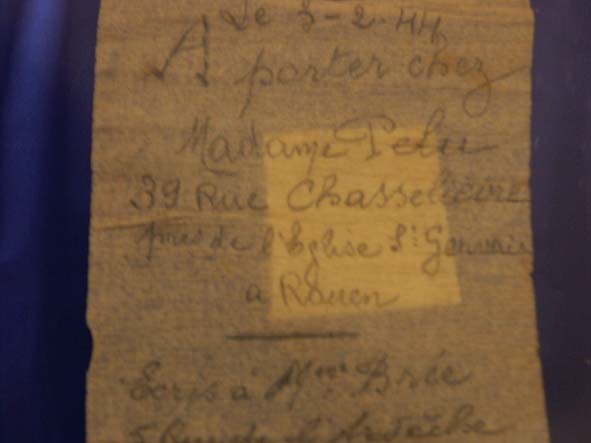 Le 3-2-44
A porter chez
Madame Pelu
39 Rue Chasselièvre
près de l'Eglise St Gervais
a Rouen
Ecris à Mme Brée
5 Rue de l'Ardèche